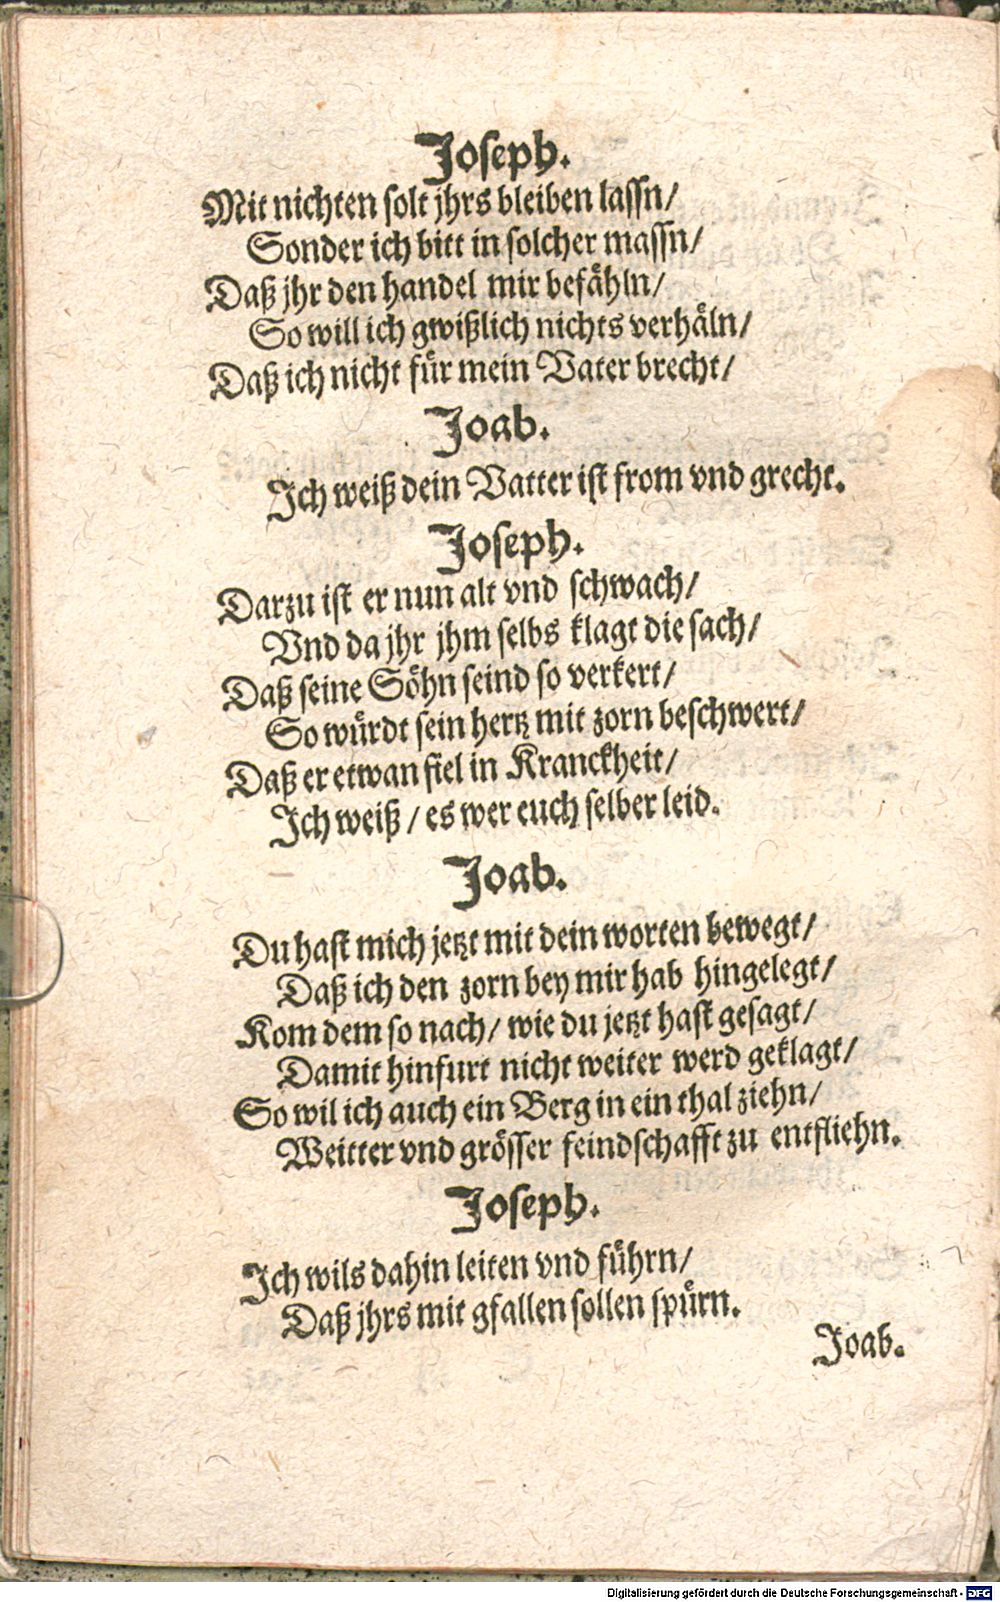 Joseph.
Mit nichten solt jhrs bleiben lassn/
Sonder ich bitt in solcher massn/
Daß jhr den handel mir befähln/
So will ich gwißlich nichts verhäln/
Daß ich nicht für mein Vater brecht/
Joab.
Ich weiß dein Vatter ist from vnd grecht.
Joseph.
Darzu ist er nun alt vnd schwach/
Vnd da jhr jhm selbs klagt die sach/
Daß seine Söhn seind so verkert/
So würdt sein hertz mit zorn beschwert/
Daß er etwan fiel in Kranckheit/
Ich weiß / es wer euch selber leid.
Joab.
Du hast mich jetzt mit dein worten bewegt/
Daß ich den zorn bey mir hab hingelegt/
Kom dem so nach/ wie du jetzt hast gesagt/
Damit hinfurt nicht weiter werd geklagt/
So wil ich auch ein Berg in ein thal ziehn/
Weitter vnd grösser feindschafft zu entfliehn.
Joseph.
Ich wils dahin leiten vnd führn/
Daß jhrs mit gfallen sollen spürn.
Joab.
Digitalisierung gefördert durch die Deutsche Forschungsgemeinschaft - DFG